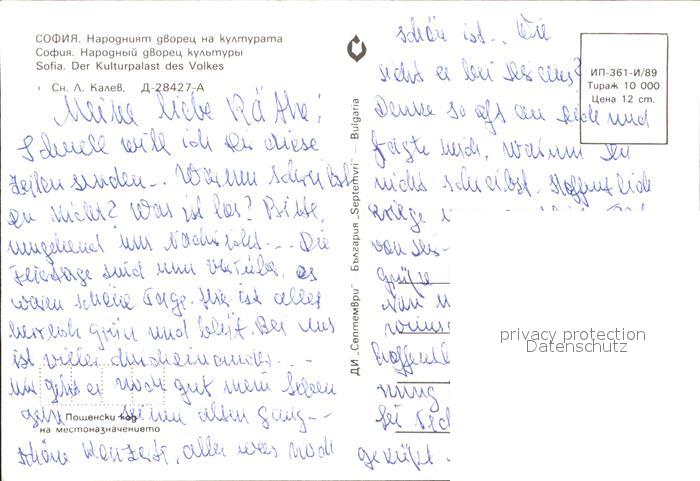 СОФИЯ. Народният дворец на културата
София. Народный дворец культуры
Sofia. Der Kulturpalast des Volkes
Сн. Л. Калев. Д-28427-А
Meine liebe Käthe!
Schnell will ich Dir diese
Zeilen senden... Warum schreibst
Du nicht? Was ist los? Bitte,
umgehend um Nachricht... Die
Feiertage sind nun vorüber, es
waren schöne Tage. Hier ist alles
herrlich grün und blüht. Bei uns
ist vieles durcheinander...
Mir geht es noch gut mein Leben
geht seinen alten Gang...
schöne Konzerte, alles was noch
Пощенски код
на местоназначението
ДИ „Септември" България „Septemvri" — Bulgaria
schön ist... Wie
sieht es bei Dir aus?
Denke so oft an Dich und
frage mich, warum Du
nicht schreibst. Hoffentlich
kriege
von Dir
Grüße
Nun
Hoffentl
nung
bei
geküßt
ИП-361-И/89
Тираж 10 000
Цена 12 ст.
privacy protection
Datenschutz